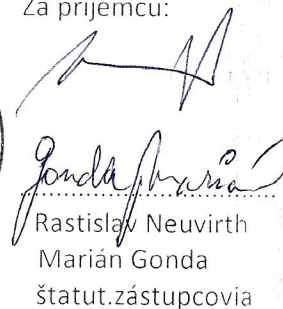 Za príjemcu:
Gonda Marián
Rastislav Neuvirth
Marián Gonda
štatut.zástupcovia